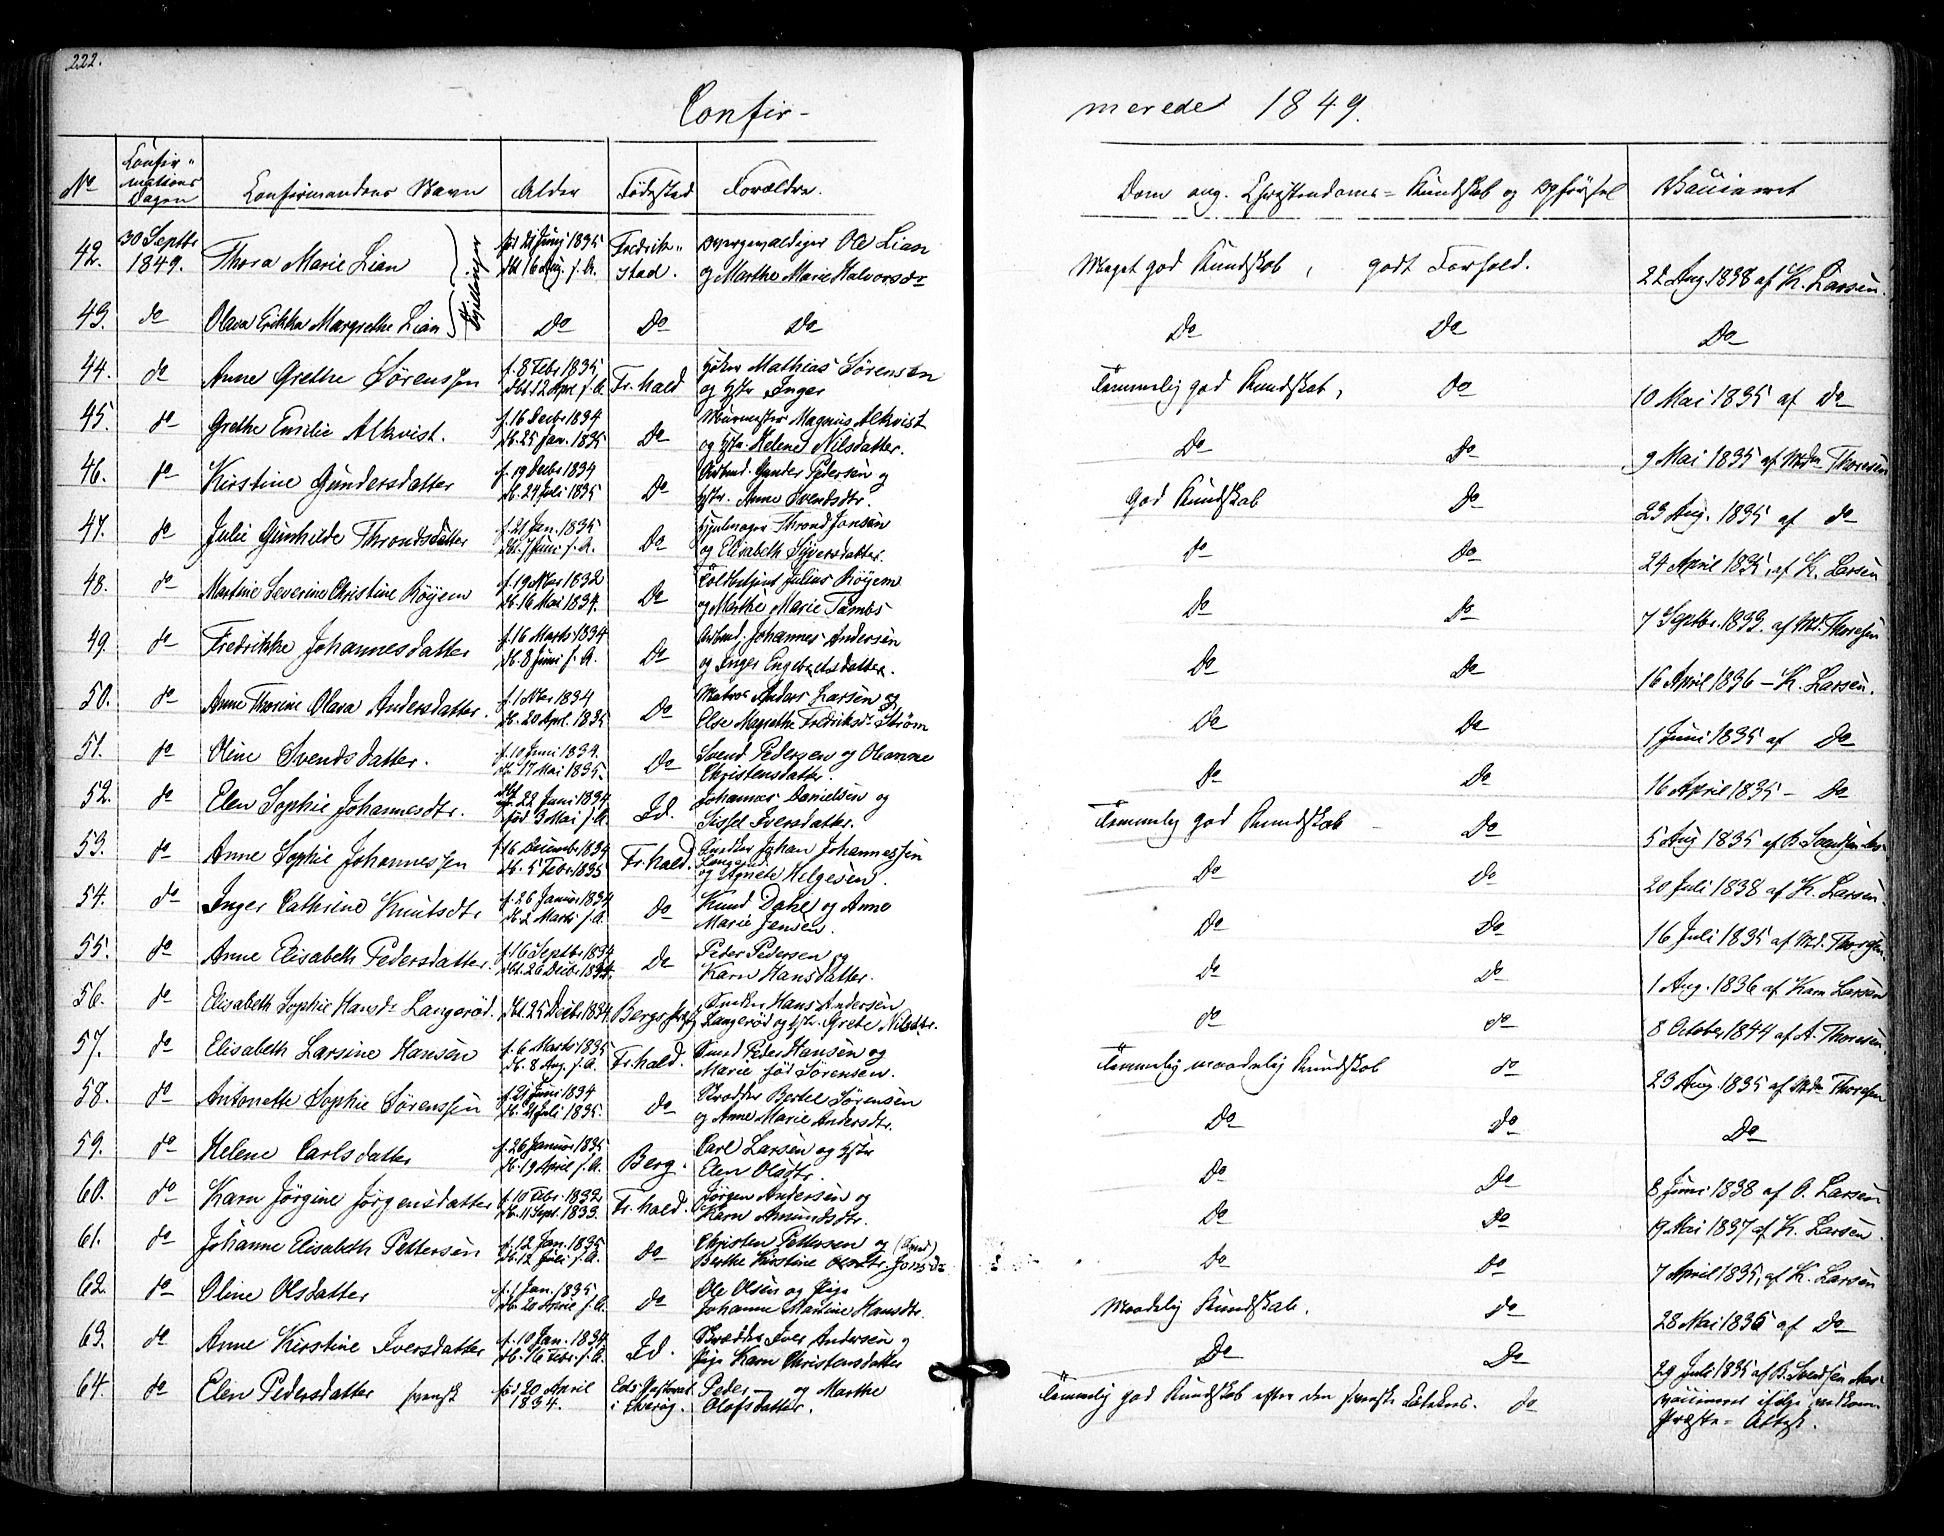 222.
Confir-
merede 1849.
No
Confir-
mations
Dagen
Confirmandens Navn
Alder
Fødested
Forældre.
Dom ang. Christendoms-Kundskab og Opførsel
Vaccineret
42. 30 Septbr 1849. Thora Marie Lian
fød 21 Junj 1835
dbt 16 Aug. s. A.
Fredrik-
stad.
Ole Lian
og Marthe Marie Halvorsdr
Meget god Kundskab, godt Forhold.
22 Aug. 1838 af K. Larsen.
Tvillinger
43. do Olava Erikka Margrethe Lian Do Do Do
Do Do Do
44. do Anne Grethe Sørenssen
f. 8 Febr 1835
dbt 12 Apr. s. A.
Fr.hald
Mathias Sørensen
og Hstr Inger
Temmelig god Kundskab, Do
10 Mai 1835 af Do
45. do Grethe Emilie Alkvist.
f. 16 Decbr 1834
db. 25 Jan. 1835
Do
Muurmester Magnus Alkvist
og Hstr. Helene Nilsdatter.
Do Do
9 Mai 1835 af Md. Thoresen
46. do Kirstine Gundersdatter
f. 19 Decbr 1834
db. 24 Juli 1835
Do
Arbmd. Gunder Pedersen og
Hstr. Anne Svendsdtr.
God Kundskab Do
23 Aug. 1835 af do
47. do Julie Gunhilde Throndsdatter
f. 21 Jan. 1835
db. 7 Juni s. A.
Do
Hjulmager Thrond Jonsen
og Elisabeth Syversdatter.
do Do
24 April 1835, af K. Larsen
48. do Martine Severine Christine Röyem
f. 19 Nbr 1832
db. 16 Mai 1834.
Do
Toldbetjent Julius Röyem
og Marthe Marie Tambs
Do Do
7 Septbr. 1833. af Md. Thoresen
49. do Fredrikke Johannesdatter
f. 16 Marts 1834
db. 8 Juni s. A.
Do
Arbmd. Johannes Andersen
og Inger Engebretsdatter.
Do Do
16 April 1836 - K. Larsen.
50. do Anne Thorine Olava Andersdatter.
f. 1 Nbr 1834
db. 20 Apr. 1835
Do
Matros Anders Larsen og
Else Megrethe Fredriksdr Strøm
Do Do
1 Juni 1835 af Do
51. do Oline Svendsdatter.
f. 10 Juni 1834.
db. 17 Mai 1835.
Do
Svend Pedersen og Oleanne
Christensdatter.
Do Do
16 April 1835 - Do
52. do Elen Sophie Johannesdtr.
22 Juni 1834
fød 3 Mai s. A.
Id.
Johannes Danielsen og
Sissel Iversdatter.
Temmelig god Kundskab - Do
5 Aug 1835 af B. Svendsen
53. do Anne Sophie Johannessen
f. 16 December 1834
db. 5 Febr. 1835
Fr.hald.
Johan Johannessen
og Agnete Helgesen.
Do do
20 Juli 1838 af K. Larsen
54. do Inger Cathrine Knutsdtr
f. 26 Januar 1834
db. 2 Marts s. A.
do
Knud Dahl og Anne
Marie Jensen.
Do Do
16 Juli 1835 af Md. Thoresen.
55. do Anne Elisabeth Pedersdatter.
f. 16 Septbr 1834
dbt. 26 Decbr 1834.
Do
Peder Pedersen og
Karn Hansdatter.
do Do
1 Aug. 1836 af Karn Larsen
56. do Elisabeth Sophie Hansdr Langerød. dbt. 25 Decbr 1834.
Hans Andersen
Langerød og Hstr. Grete Nilsdtr.
do do
8 October 1844 af A. Thoresen.
57. do Elisabeth Larsine Hansen
f. 6 Marts 1835
db. 8 Aug. s. A.
Fr.hald.
Smed Peder Hansen og
Marie fød Sørensen.
Temmelig maadelig Kundskab do
23 Aug. 1835 af Md. Thoresen
58. do Antonette Sophie Sørenssen
f. 21 Juni 1834
db. 21 Juli 1835.
do
Skrædder Bertel Sørensen
og Anne Marie Andersdtr.
Do do Do
59. do Helene Carlsdatter
f. 26 Januar 1835
db. 19 April s. A.
Berg.
Carl Larsen og Hstr
Elen Olsdtr.
Do Do
8 Juni 1838 af O. Larsen
60. do Karn Jørgine Jørgensdatter
f. 10 Febr. 1832
db. 11 Sept. 1833.
Fr.hald.
Jørgen Andersen og
Karn Amundsdtr.
Do do
19 Mai 1837 af K. Larsen.
61. do Johanne Elisabeth Pettersen
f. 12 Jan. 1835
db. 12 Juli s. A.
do
Christen Pettersen og
Berthe Kirstine Olsdtr.
Do Do
7 April 1835, af K. Larsen
62. do Oline Olsdatter
f. 1 Jan. 1835
db. 20 April s. A.
do
Ole Olsen og Pige
Johanne Martine Hansdtr.
Maadelig Kundskab. do
28 Mai 1836 af Do
63. do Anne Kirstine Iversdatter
f. 10 Jan. 1834
db. 16 Febr. s. A.
Id.
Skrædder Iver Andersen og
Pige Karn Christensdatter
Do Do
29 Juli 1835 af B. Svendsen
64. do Elin Pedersdatter svensk
fød 20 April
1834.
i Sverig.
Peder — og Marthe
Olofsdatter.
Temmelig god Kundskab efter den svenske Catekes. do
Vaccineret ifølge vedkom.
Præste-Attest.